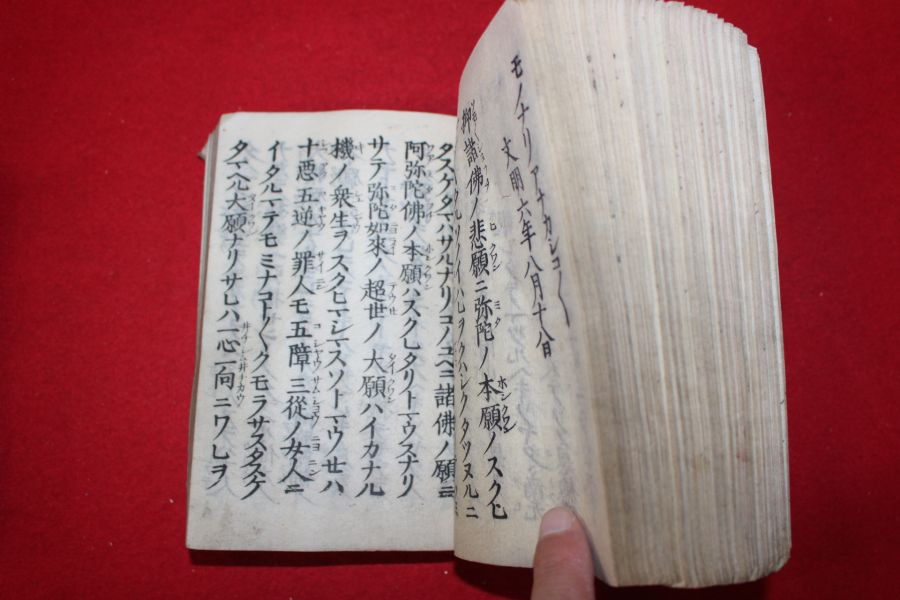 モノナリアナカシコ〳〵
文明六年八月十八日
抑諸佛ノ悲願ニ弥陀ノ本願ノスクレ
タスケタマハサルナリコノユヘニ諸佛ノ願ニ
阿弥陀佛ノ本願ハスクレタリトマウスナリ
サテ弥陀如來ノ超世ノ大願ハイカナル
機ノ衆生ヲスクヒマシマスソトマウセハ
十悪五逆ノ罪人モ五障三從ノ女人ニ
イタルマテモミナコト〳〵クモラサスタスケ
タマヘル大願ナリサレハ一心一向ニワレヲ